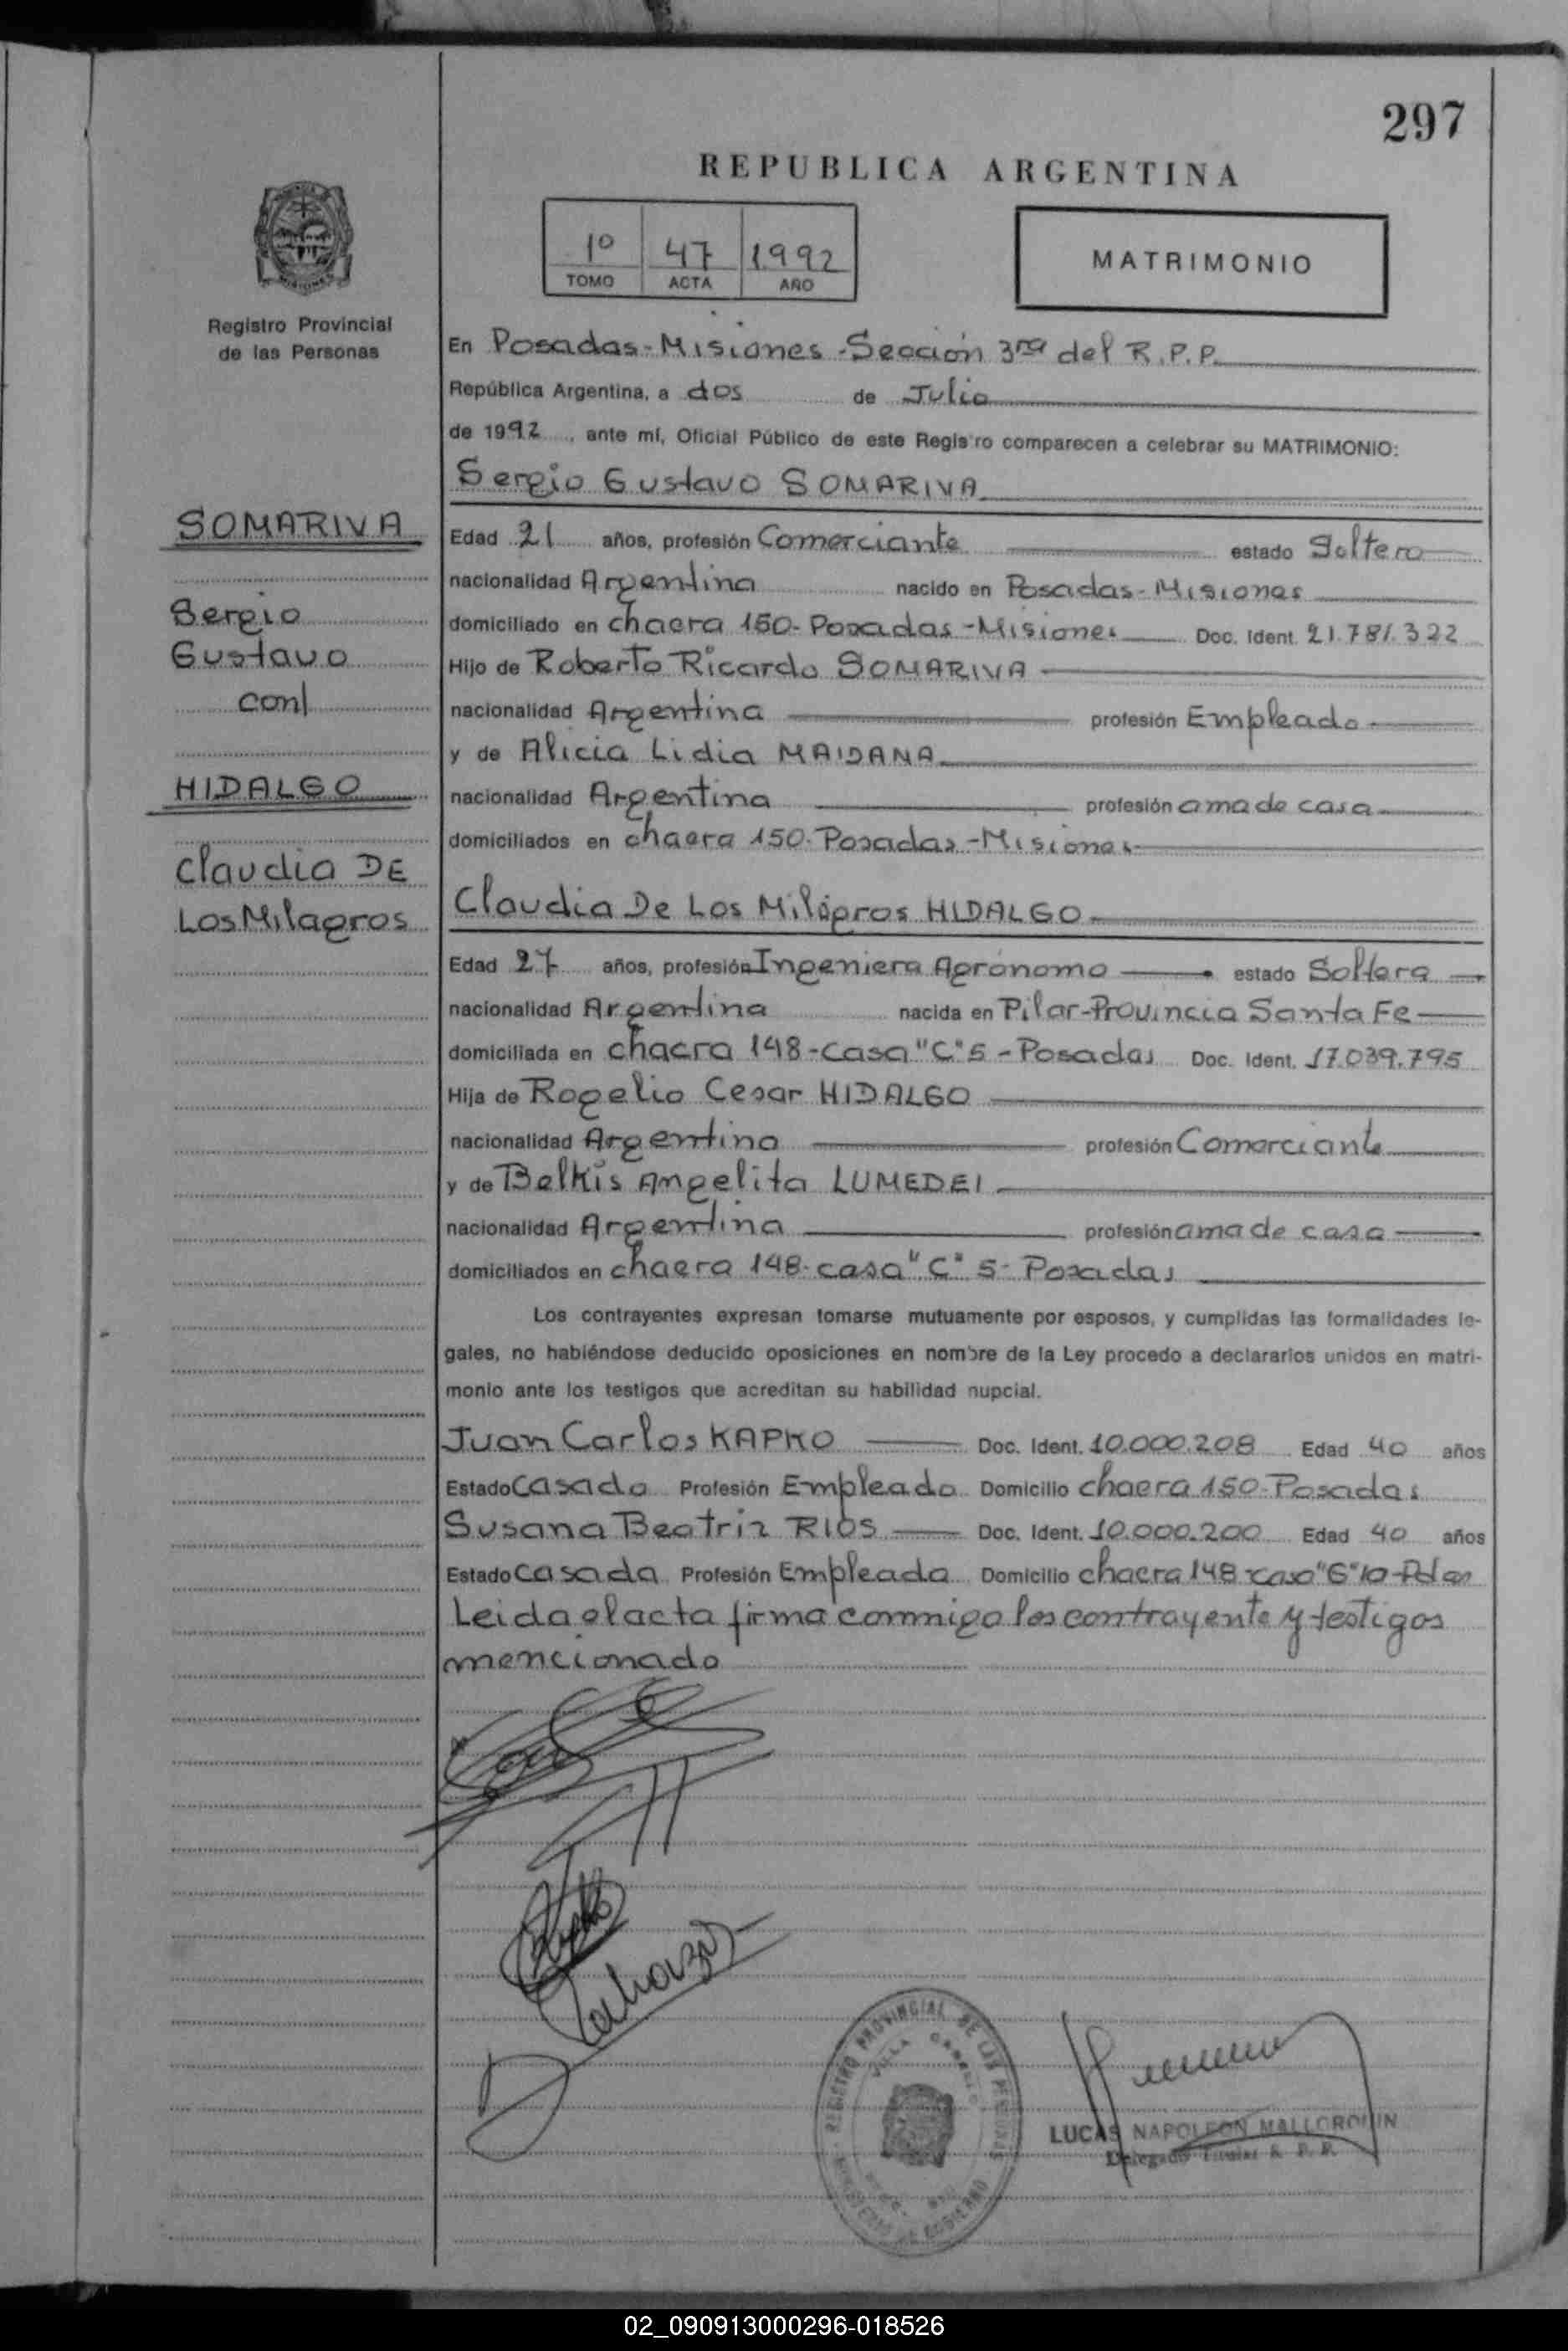 297
REPUBLICA ARGENTINA
1º 47 1992
TOMO ACTA AÑO
MATRIMONIO
Registro Provincial
de las Personas
En Posadas-Misiones-Sección 3ra del R.P.P.
República Argentina, a dos de Julio
de 1992, ante mí, Oficial Público de este Registro comparecen a celebrar su MATRIMONIO:
Sergio Gustavo SOMARIVA
SOMARIVA
Sergio
Gustavo
con/
HIDALGO
Claudia DE
Los Milagros
Edad 21 años, profesión Comerciante estado Soltero
nacionalidad Argentina nacido en Posadas-Misiones
domiciliado en chacra 150-Posadas-Misiones Doc. Ident. 21.781.322
Hijo de Roberto Ricardo SOMARIVA
nacionalidad Argentina profesión Empleado
y de Alicia Lidia MAIDANA
nacionalidad Argentina profesión ama de casa
domiciliados en chacra 150-Posadas-Misiones
Claudia De Los Milagros HIDALGO
Edad 27 años, profesión Ingeniera Agrónomo estado Soltera
nacionalidad Argentina nacida en Pilar-Provincia Santa Fe
domiciliada en chacra 148-casa "C" 5-Posadas Doc. Ident. 17.039.795
Hija de Rogelio Cesar HIDALGO
nacionalidad Argentino profesión Comerciante
y de Belkis Angelita LUMEDEI
nacionalidad Argentina profesión ama de casa
domiciliados en chacra 148-casa "C" 5-Posadas
Los contrayentes expresan tomarse mutuamente por esposos, y cumplidas las formalidades le-
gales, no habiéndose deducido oposiciones en nombre de la Ley procedo a declararlos unidos en matri-
monio ante los testigos que acreditan su habilidad nupcial.
Juan Carlos KAPKO Doc. Ident. 10.000.208 Edad 40 años
Estado Casado Profesión Empleado Domicilio chacra 150-Posadas
Susana Beatriz RIOS Doc. Ident. 10.000.200 Edad 40 años
Estado casada Profesión Empleada Domicilio chacra 148-casa "G" 10-Pdas
Leida el acta firma conmigo los contrayente y testigos
mencionado
REGISTRO PROVINCIAL DE LAS PERSONAS
VILLA
MINISTERIO DE GOBIERNO
LUCAS NAPOLEON MALLORQUIN
Delegado Titular R. P. P.
02_090913000296-018526